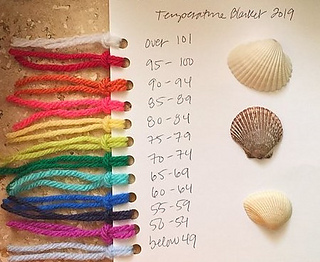 Temperature Blanket 2019
over 101
95 - 100
90 - 94
85 - 89
80 - 84
75 - 79
70 - 74
65 - 69
60 - 64
55 - 59
50 - 54
below 49